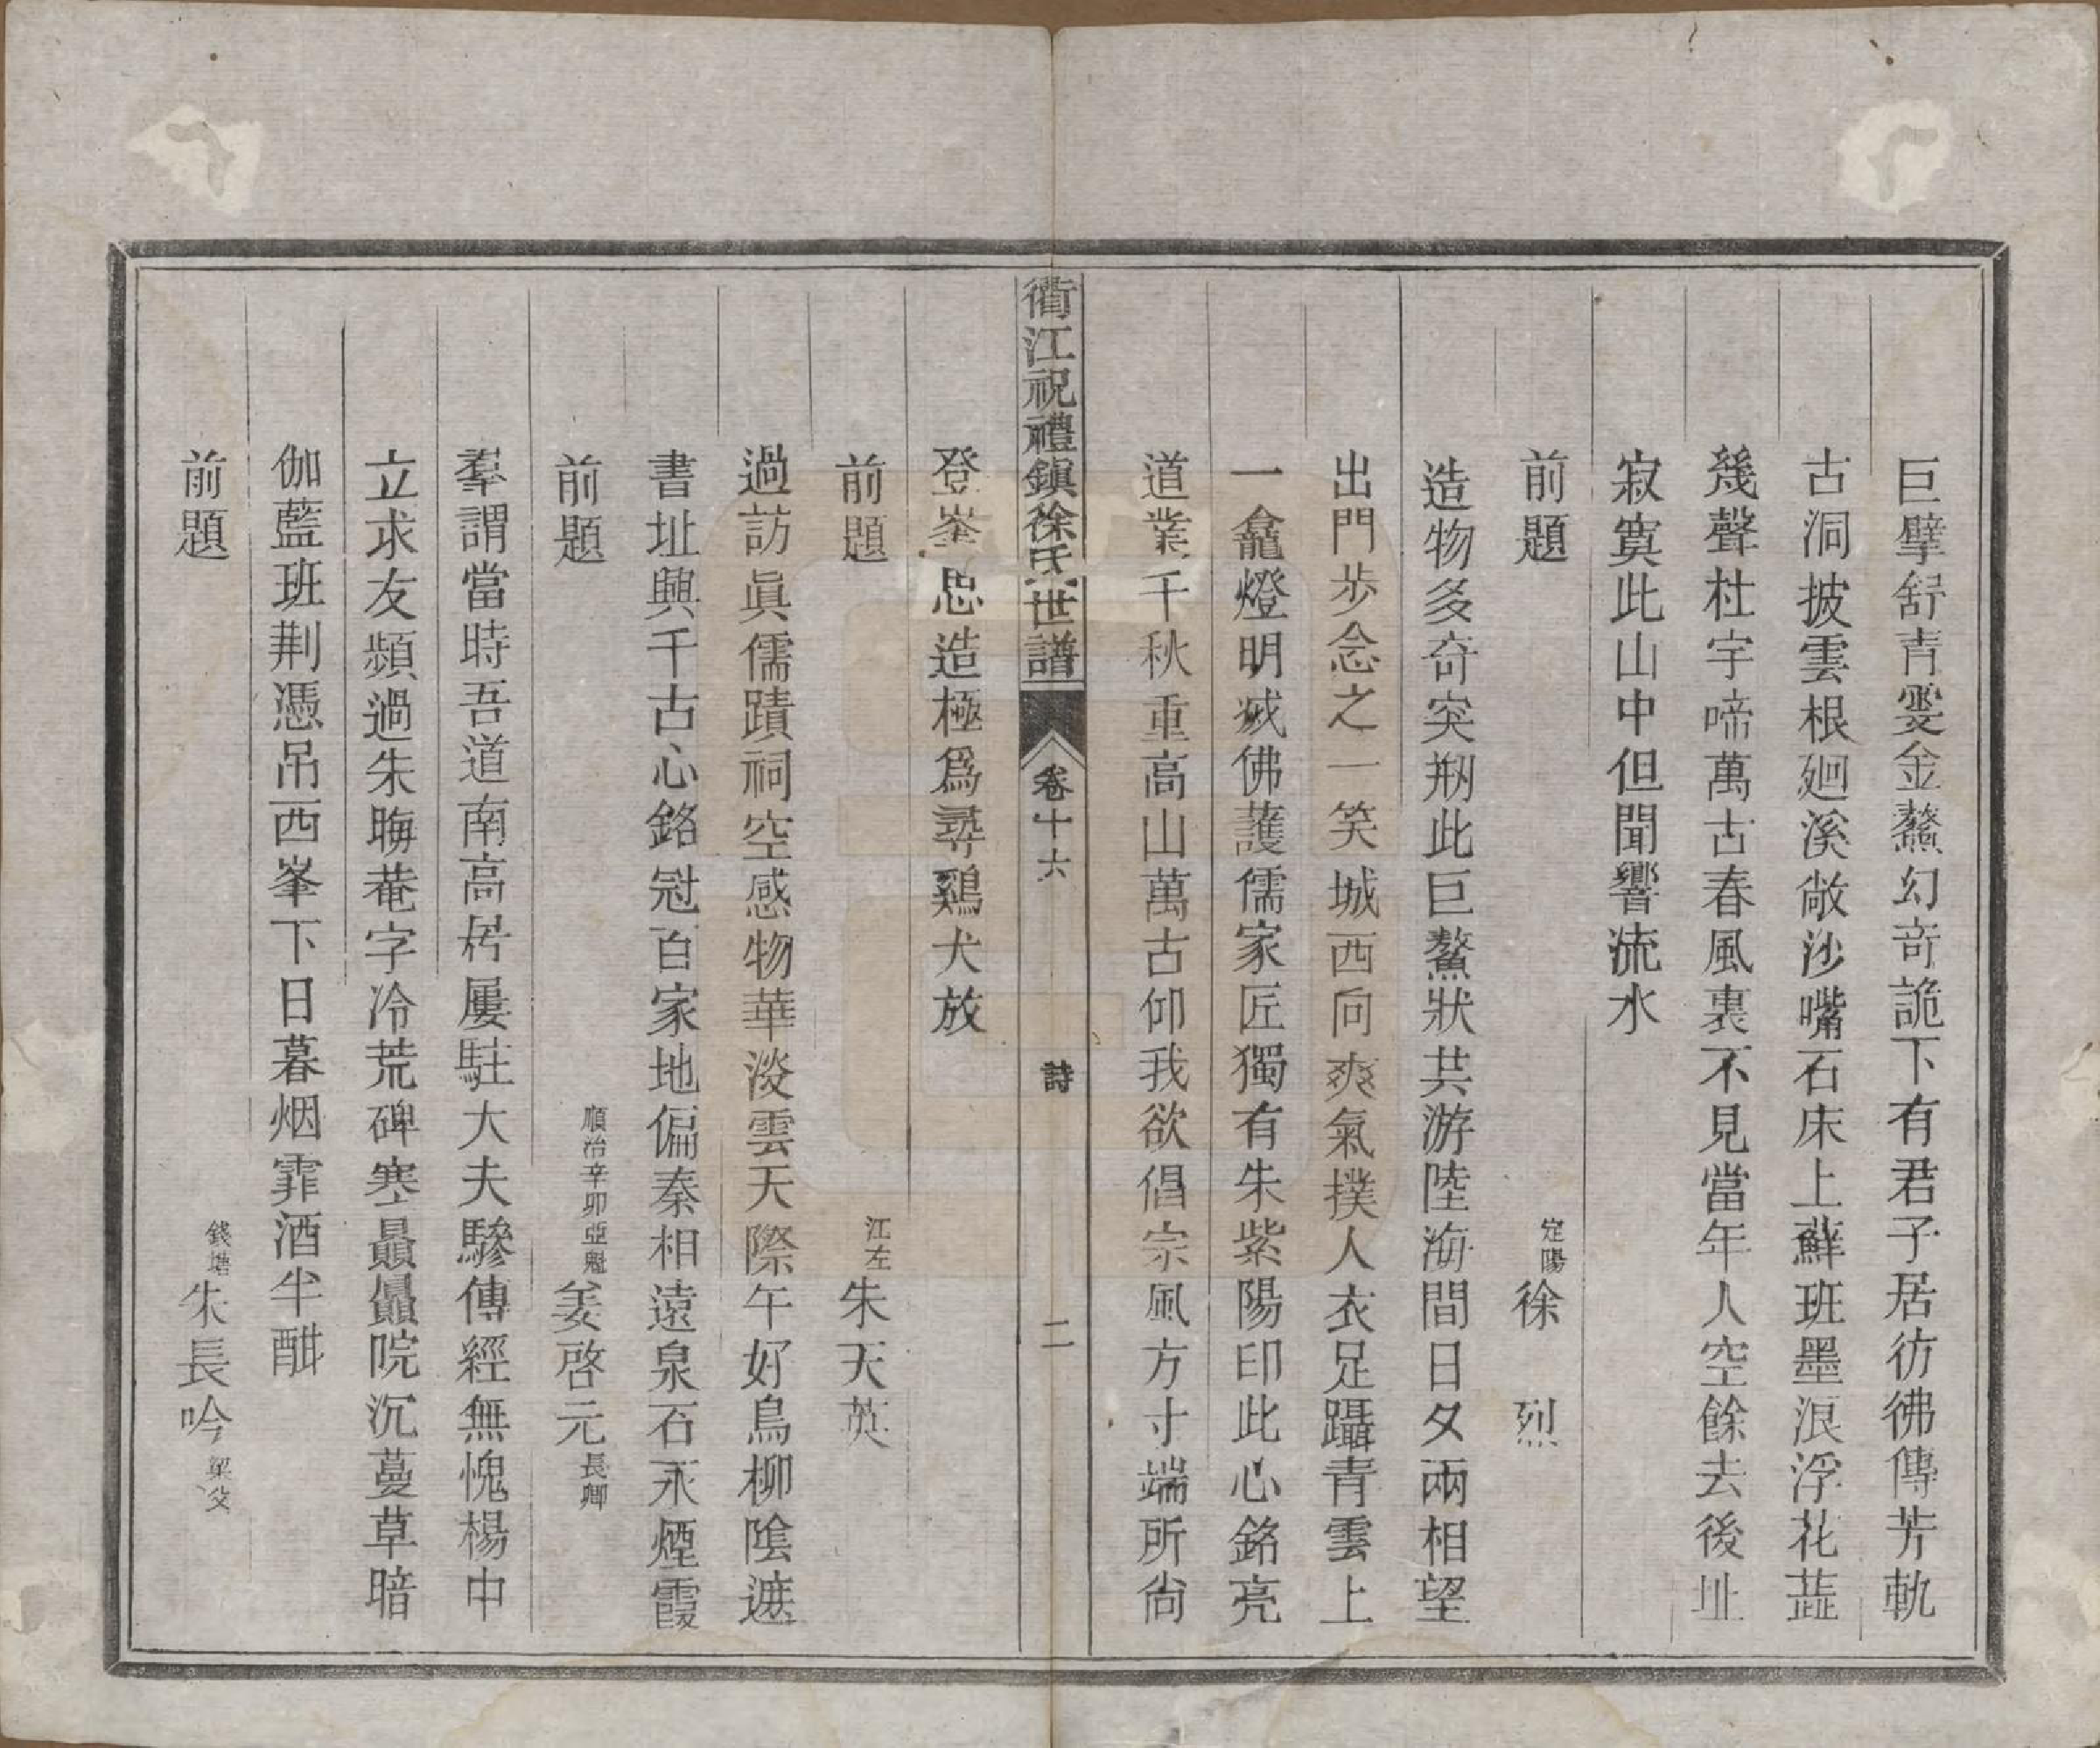 巨擘舒青雯金鰲幻竒詭下有君子居彷彿傳芳軌
古洞披雲根廻溪敞沙嘴石床上蘚班墨浪浮花蕋
幾聲杜宇啼萬古春風裏不見當年人空餘去後址
寂寞此山中但聞響流水
前題 定陽徐 烈
造物多奇突刱此巨鰲狀共游陸海間日夕兩相望
出門步念之一笑城西向爽氣撲人衣足躡青雲上
一龕燈明滅佛護儒家匠獨有朱紫陽印此心銘亮
道業千秋重高山萬古仰我欲倡宗風方寸端所尙
衢江祝禮鎭徐氏世譜 卷十六 詩 二
登峯思造極爲尋鷄犬放
前題 江左朱天英
過訪眞儒蹟祠空感物華淡雲天際午好鳥柳陰遮
書址興千古心銘冠百家地偏秦相遠泉石永煙霞
前題 順治辛卯亞魁姜啓元長卿
羣謂當時吾道南高居屢駐大夫驂傳經無愧楊中
立求友頻過朱晦菴字冷荒碑寒贔屭院沉蔓草暗
伽藍班荆憑吊西峯下日暮烟霏酒半酣
前題 錢塘朱長吟梁父